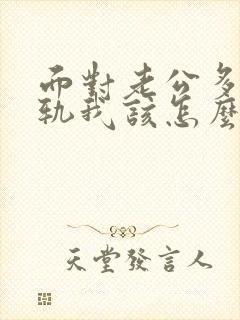 而對老公多
軌我該怎麼
天堂發言人